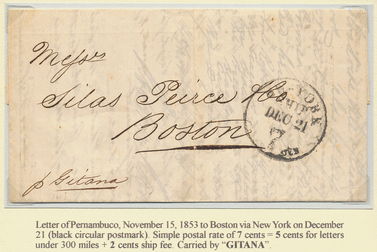 Messrs
Silas Peirce & Co
Boston
p Gitana
YORK
SHIP
DEC 21
7
cts
Letter of Pernambuco, November 15, 1853 to Boston via New York on December
21 (black circular postmark). Simple postal rate of 7 cents = 5 cents for letters
under 300 miles + 2 cents ship fee. Carried by “GITANA”.